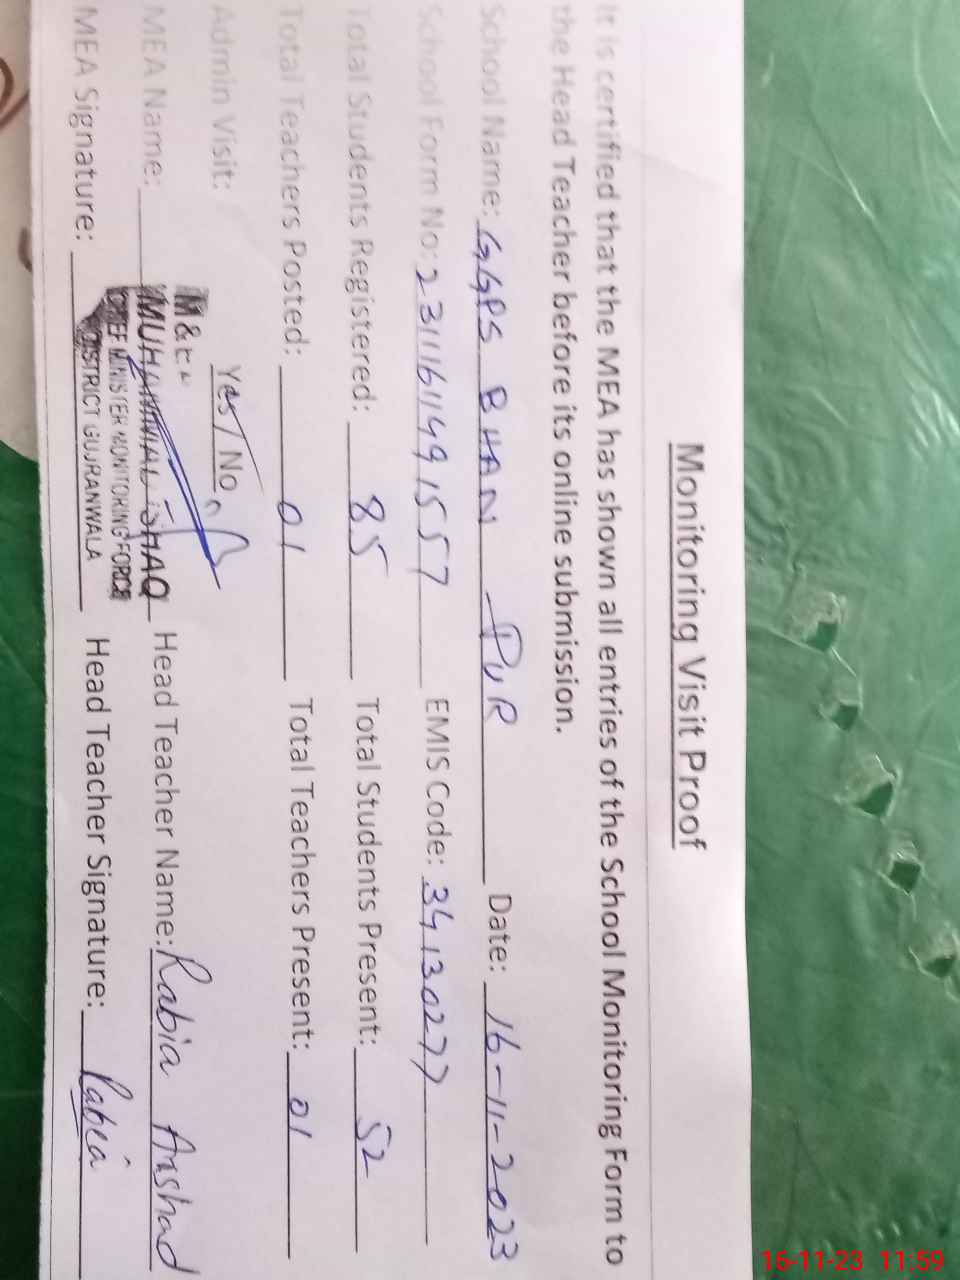 Monitoring Visit Proof
It is certified that the MEA has shown all entries of the School Monitoring Form to
the Head Teacher before its online submission.
School Name: GGPS BHAN PUR Date: 16-11-2023
School Form No: 231116114991557 EMIS Code: 34130277
Total Students Registered: 85 Total Students Present: 52
Total Teachers Posted: 01 Total Teachers Present: 01
Admin Visit: Yes / No
MEA Name: MUHAMMAD ISHAQ Head Teacher Name: Rabia Arshad
CHIEF MINISTER MONITORING FORCE
MEA Signature: DISTRICT GUJRANWALA Head Teacher Signature: Rabia
16-11-23 11:59